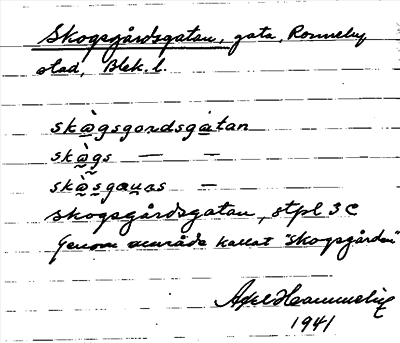 Skogsgårdsgatan, gata, Ronneby
stad, Blek. l.
skògsgordsgatan
skògs — —
skògs — 
skogsgårdsgatan, stpl 3C
Genom område kallat "Skogsgården"
Axel
1941